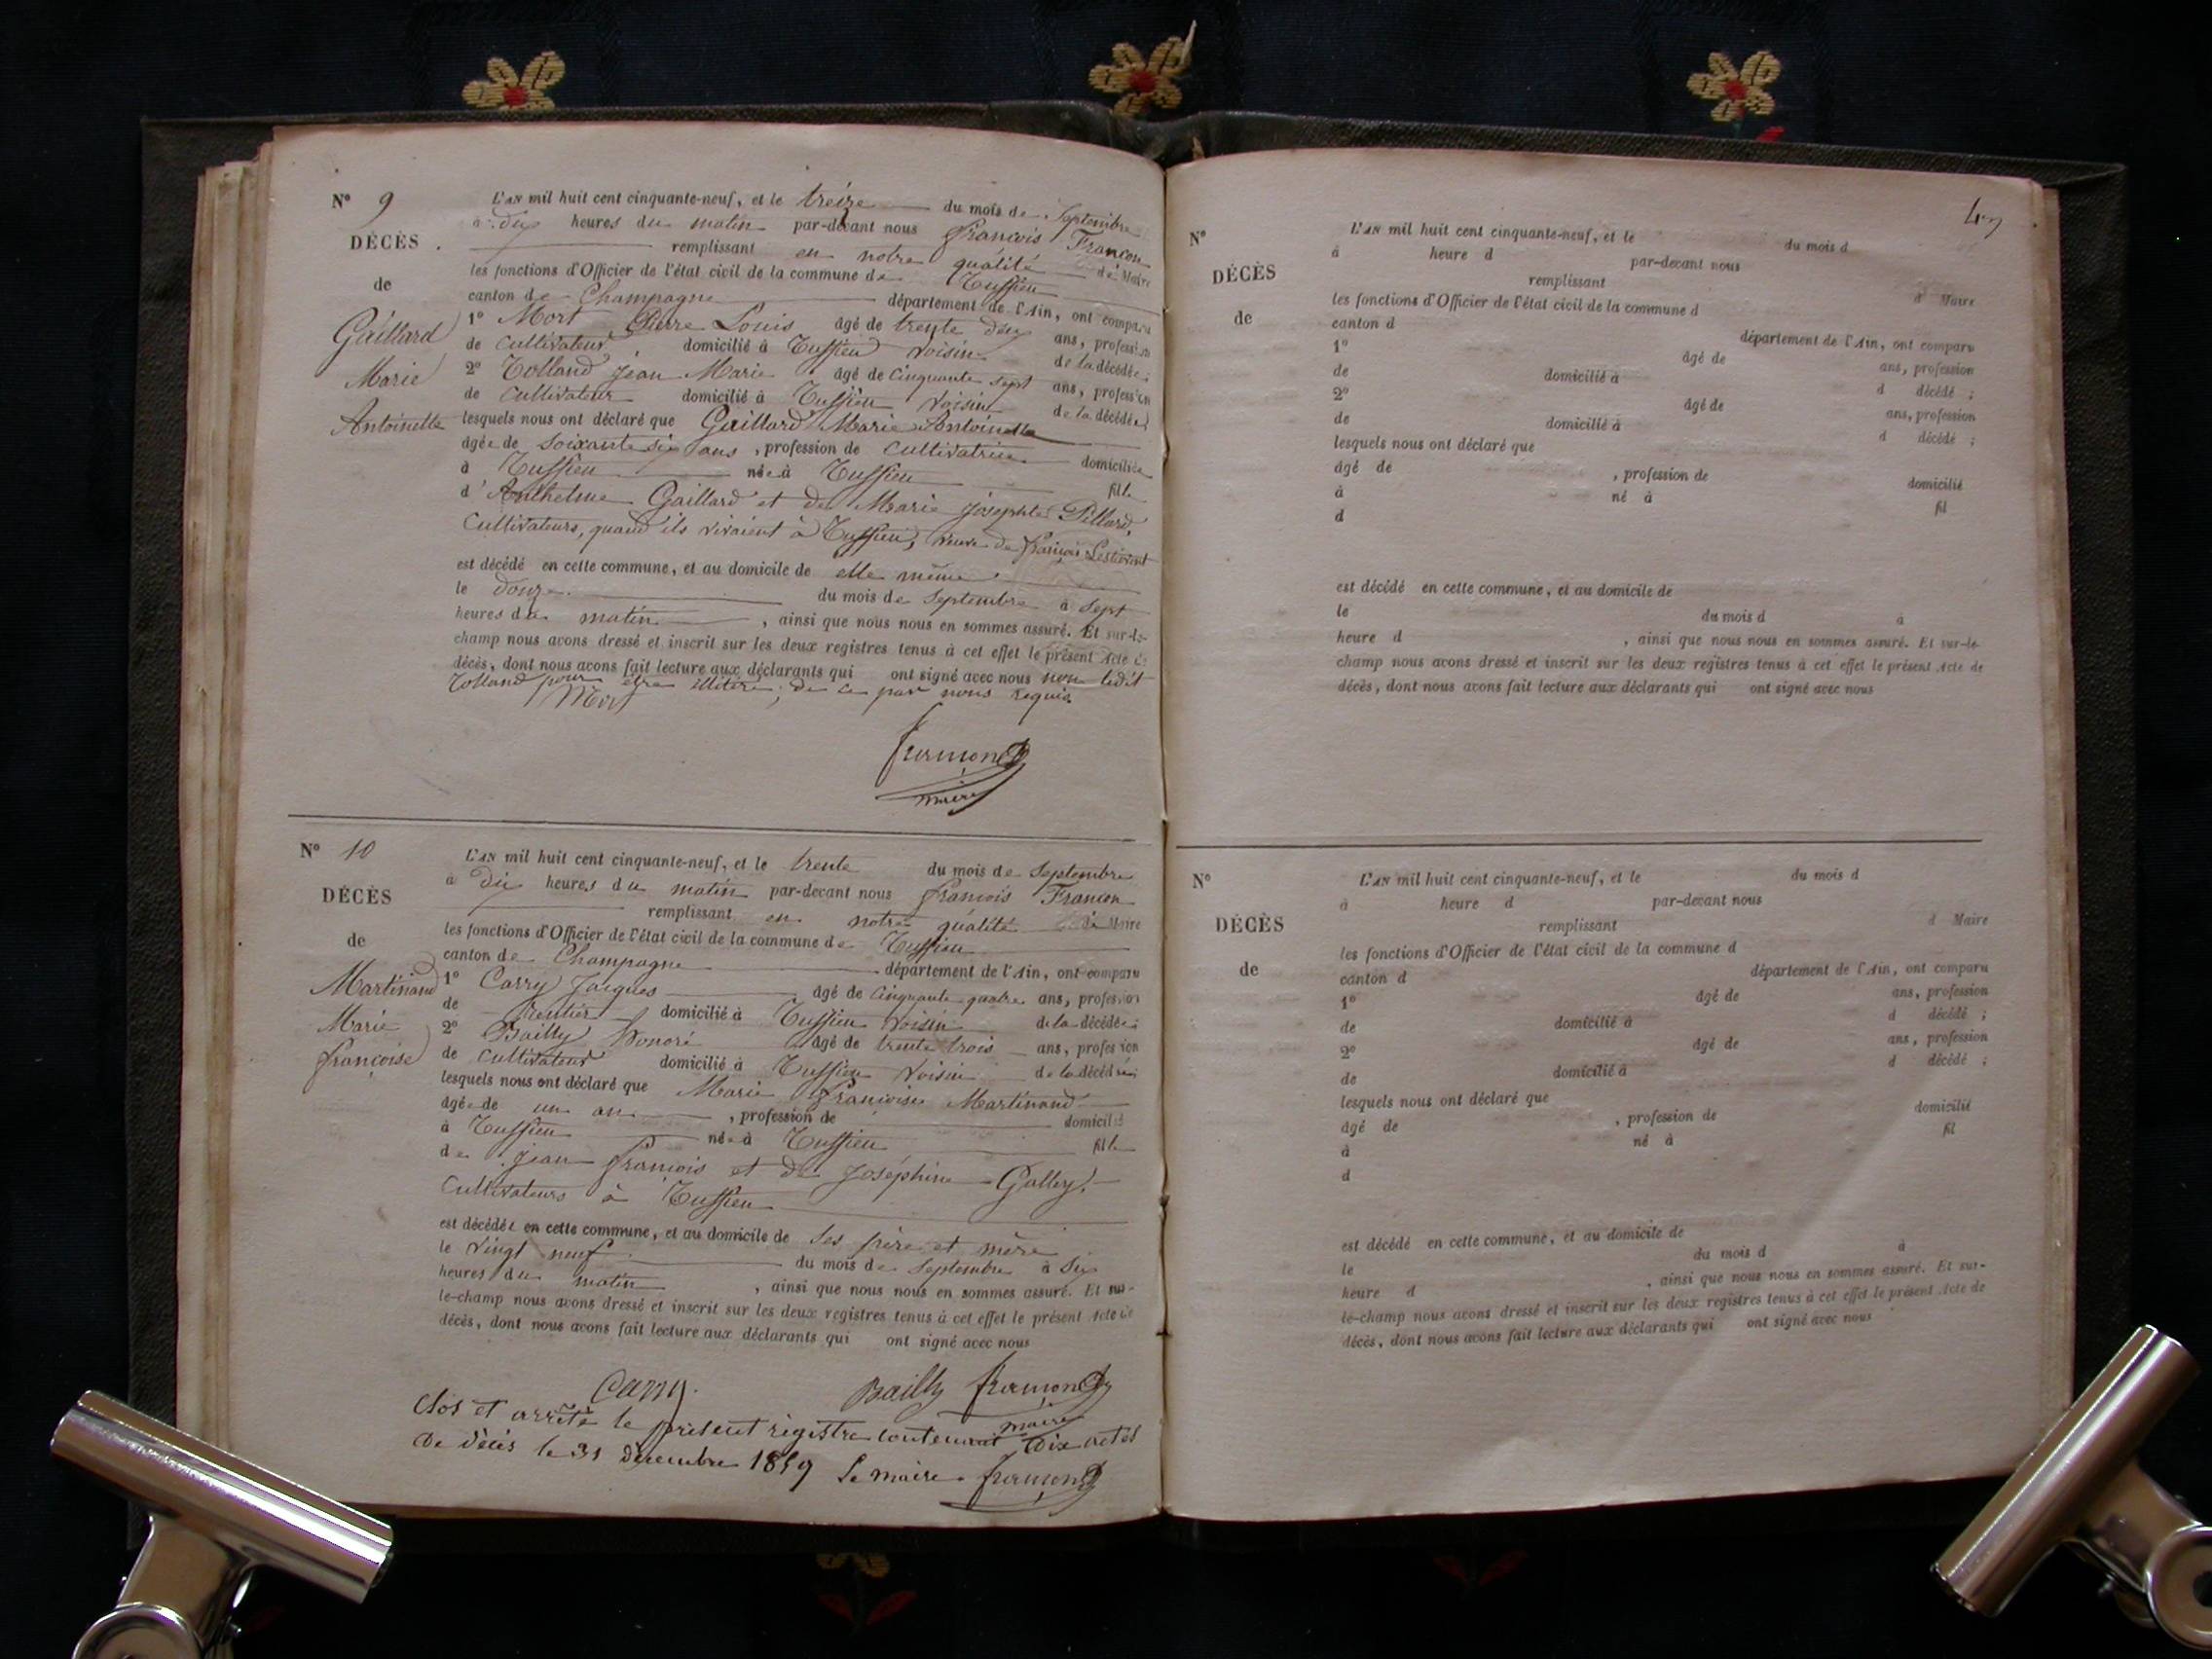 Nº 9
DÉCÈS
de
Gaillard
Marie
Antoinette
L'AN mil huit cent cinquante-neuf, et le treize du mois de Septembre
à dix heures du matin par-devant nous François Françon
remplissant en notre qualité de Maire
les fonctions d'Officier de l'état civil de la commune de
canton de Champagne département de l'Ain, ont comparu
1º Mort Pierre Louis âgé de trente deux ans, profession
de Cultivateur domicilié à voisin de la décédée ;
2º Tolland Jean Marie âgé de Cinquante sept ans, profession
de Cultivateur domicilié à voisin de la décédée ;
lesquels nous ont déclaré que Gaillard Marie Antoinette
âgée de soixante six ans , profession de Cultivatrice domiciliée
à née à fille
d'Anthelme Gaillard et de Marie Josephte Pillard,
Cultivateurs, quand ils vivaient à veuve de françois
est décédé en cette commune, et au domicile de elle même
le douze du mois de Septembre à Sept
heures du matin , ainsi que nous nous en sommes assuré. Et sur-le-
champ nous avons dressé et inscrit sur les deux registres tenus à cet effet le présent Acte de
décès, dont nous avons fait lecture aux déclarants qui ont signé avec nous non ledit
Tolland pour être illitéré, de ce par nous requis
Mort
maire
Nº 10
DÉCÈS
de
Martinand
Marie
françoise
L'AN mil huit cent cinquante-neuf, et le trente du mois de Septembre
à dix heures du matin par-devant nous françois Françon
remplissant en notre qualité de Maire
les fonctions d'Officier de l'état civil de la commune de
canton de Champagne département de l'Ain, ont comparu
1º Carry Jacques âgé de Cinquante quatre ans, profession
de Rentier domicilié à voisin de la décédée ;
2º Bailly honoré âgé de trente trois ans, profession
de Cultivateur domicilié à voisin de la décédée ;
lesquels nous ont déclaré que Marie Françoise Martinand
âgée de un an , profession de domicilié
à née à fille
de Jean françois et de Joséphine Galley,
Cultivateurs à
est décédée en cette commune, et au domicile de ses père et mère
le vingt neuf du mois de Septembre à Six
heures du matin , ainsi que nous nous en sommes assuré. Et sur-
le-champ nous avons dressé et inscrit sur les deux registres tenus à cet effet le présent Acte de
décès, dont nous avons fait lecture aux déclarants qui ont signé avec nous
Carry Bailly
maire
Clos et arrêté le présent régistre contenant dix actes
de décès le 31 décembre 1859 Le maire
Nº
DÉCÈS
de
L'AN mil huit cent cinquante-neuf, et le du mois d
à heure d par-devant nous
remplissant d Maire
les fonctions d'Officier de l'état civil de la commune d
canton d département de l'Ain, ont comparu
1º âgé de ans, profession
de domicilié à d décédé ;
2º âgé de ans, profession
de domicilié à d décédé ;
lesquels nous ont déclaré que
âgé de , profession de domicilié
à né à fil
d
est décédé en cette commune, et au domicile de
le du mois d à
heure d , ainsi que nous nous en sommes assuré. Et sur-le-
champ nous avons dressé et inscrit sur les deux registres tenus à cet effet le présent Acte de
décès, dont nous avons fait lecture aux déclarants qui ont signé avec nous
Nº
DÉCÈS
de
L'AN mil huit cent cinquante-neuf, et le du mois d
à heure d par-devant nous
remplissant d Maire
les fonctions d'Officier de l'état civil de la commune d
canton d département de l'Ain, ont comparu
1º âgé de ans, profession
de domicilié à d décédé ;
2º âgé de ans, profession
de domicilié à d décédé ;
lesquels nous ont déclaré que
âgé de , profession de domicilié
à né à fil
d
est décédé en cette commune, et au domicile de
le du mois d à
heure d , ainsi que nous nous en sommes assuré. Et sur-
le-champ nous avons dressé et inscrit sur les deux registres tenus à cet effet le présent Acte de
décès, dont nous avons fait lecture aux déclarants qui ont signé avec nous